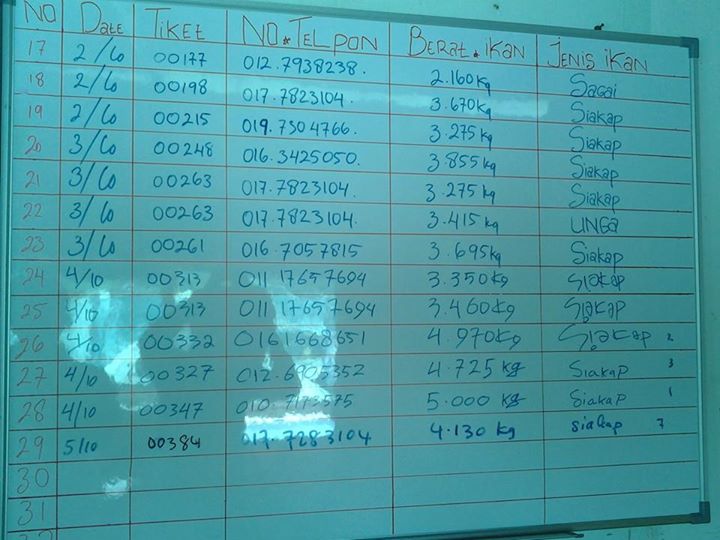 NO Date TIKET NO. TELPON BERAT. IKAN JENIS IKAN
17 2/10 00177 012.7938238. 2.160kg SAGAI
18 2/10 00198 017.7823104. 3.670kg Siakap
19 2/10 00215 019.7304766. 3.275kg Siakap
20 3/10 00248 016.3425050. 3.855kg Siakap
21 3/10 00263 017.7823104. 3.275kg Siakap
22 3/10 00263 017.7823104. 3.415kg UNGA
23 3/10 00261 016.7057815 3.695kg Siakap
24 4/10 00313 011 17657694 3.350kg SIAKAP
25 4/10 00313 011 17657694 3.460kg SIAKAP
26 4/10 00332 0161668651 4.970kg SIAKAP 2
27 4/10 00327 012.6905352 4.725 kg SIAKAP 3
28 4/10 00347 010.7173575 5.000 kg SIAKAP 1
29 5/10 00384 017.7283104 4.130 kg siakap 7
30
31